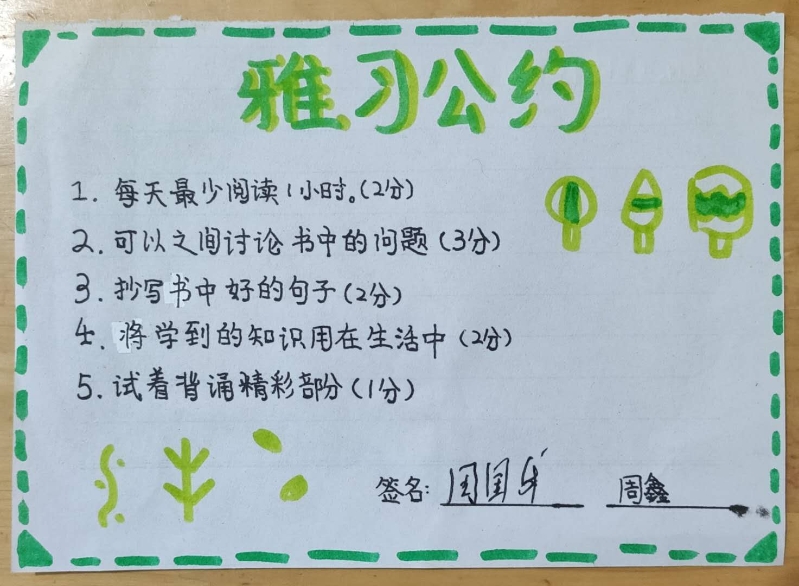 雅习公约
1. 每天最少阅读1小时。(2分)
2. 可以之间讨论书中的问题(3分)
3. 抄写书中好的句子(2分)
4. 将学到的知识用在生活中(2分)
5. 试着背诵精彩部分(1分)
签名: 周鑫